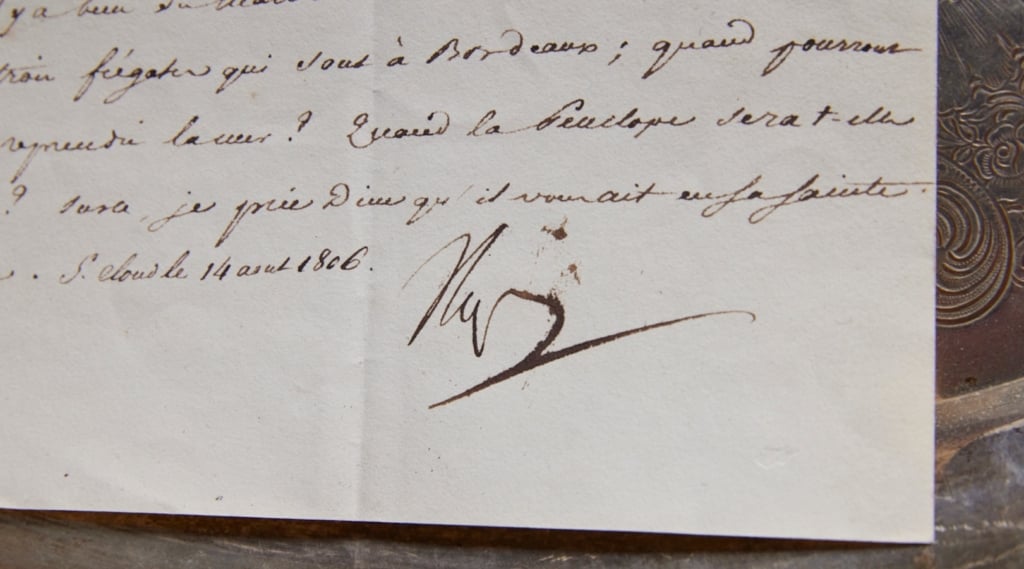 y a bien du
trois frégates qui sont à Bordeaux; quand pourront
reprendre la mer? Quand la Pénélope sera t-elle
? sur ce, je prie Dieu qu'il vous ait en sa sainte
. St. Cloud le 14 aout 1806.
Nap